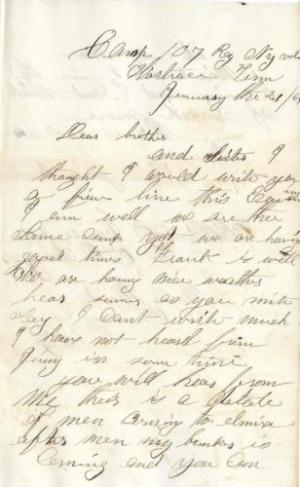 Camp 107 Reg Ny vols
Wartrace Tenn
January the 21 /64
Dear brother
and Sister I
thought I would write you
a few line this Eeg
I am well we are ther
Same camp yet we are having
good times Frank is well
We are having nice weather
hear sumer as you mite
say I cant write much
I have not heard from
Jinny in some time
you will hear from
Me their is a
of men coming to elmira
after men my bunker is
Coming and you can